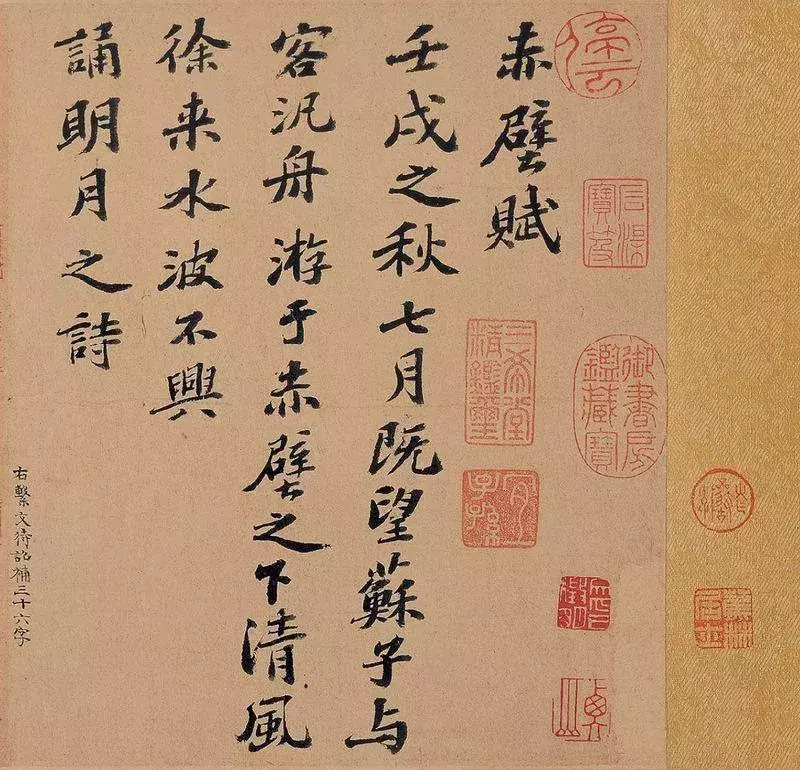 赤壁賦
壬戌之秋七月既望蘇子与
客汎舟游于赤壁之下清風
徐来水波不興
誦明月之詩
右繫文待詔補三十六字
停云
三希堂
精鑑璽
御書房
鑑藏寶
宜
子孫